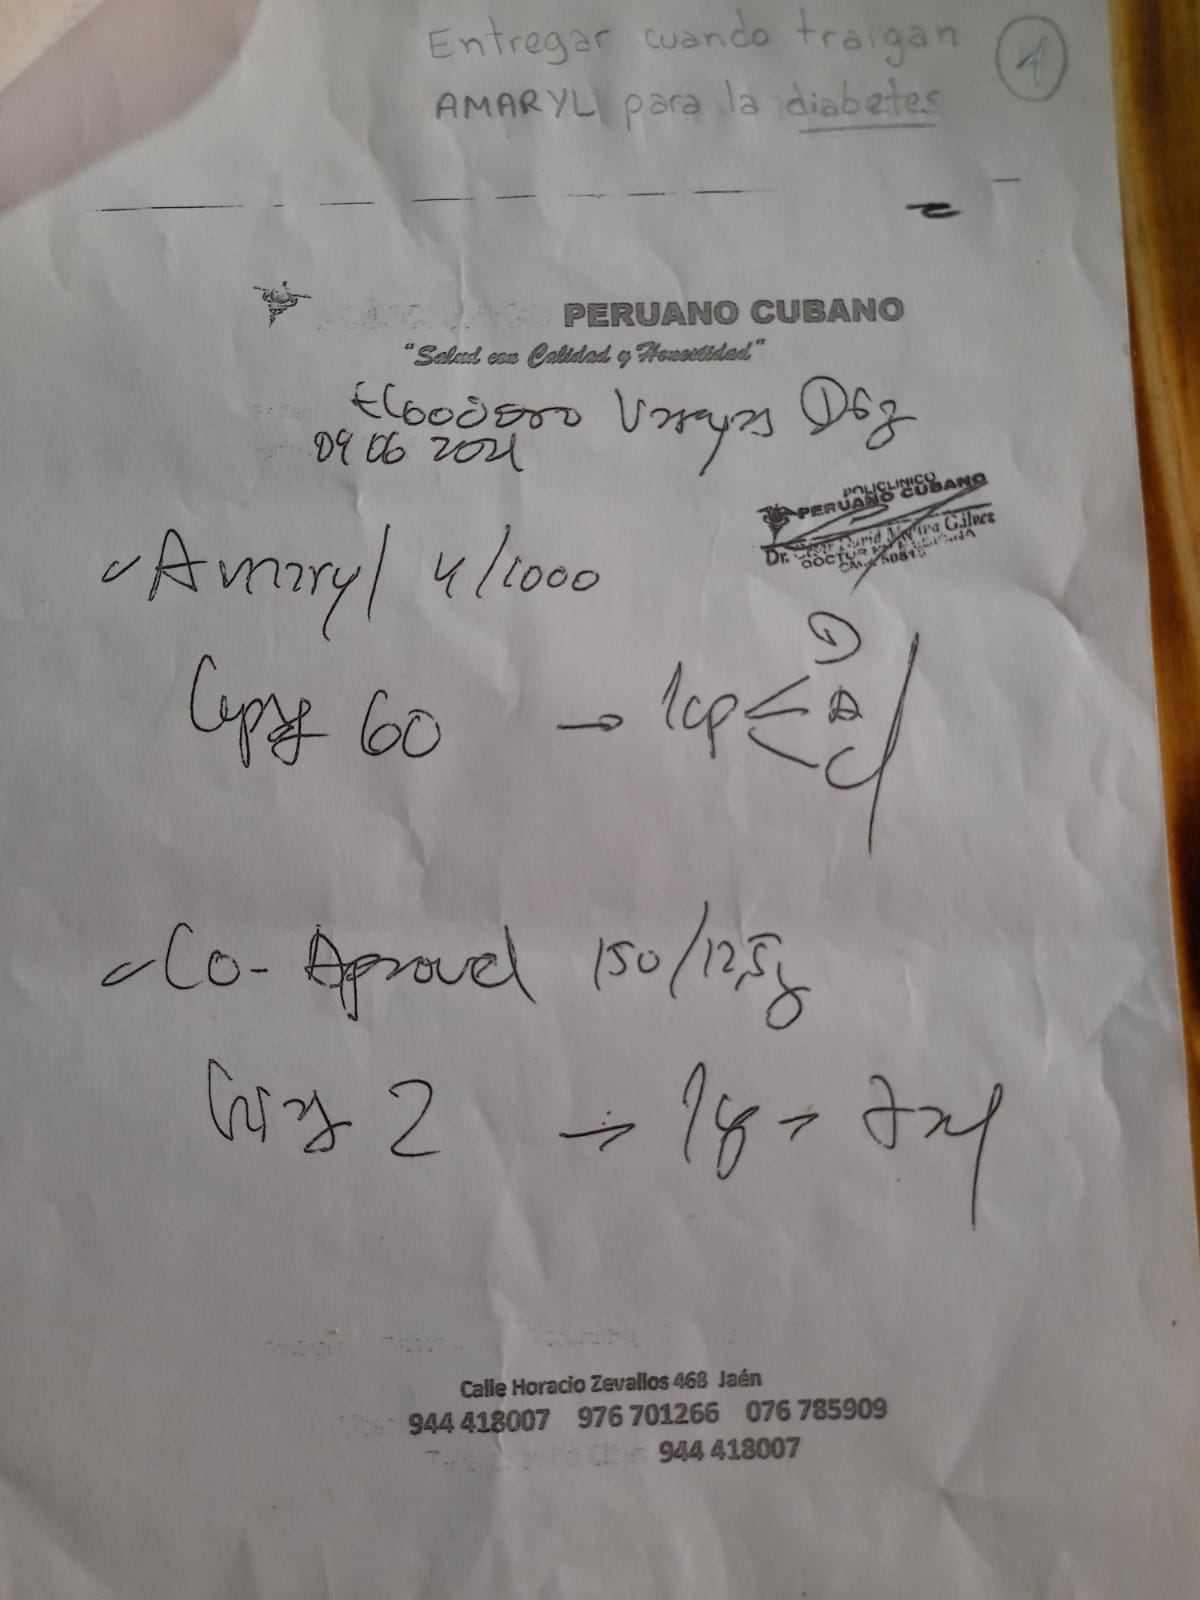 Entregar cuando traigan
AMARYL para la diabetes
1
PERUANO CUBANO
"Salud con Calidad y Honestidad"
09 06 2021
POLICLINICO
PERUANO CUBANO
Dr. David Gálvez
DOCTOR
Amaryl 4/1000
60 → 1cp < D
A
C
Co-Aprovel 150/12,5
2 → 1
Calle Horacio Zevallos 468 Jaén
944 418007 976 701266 076 785909
944 418007